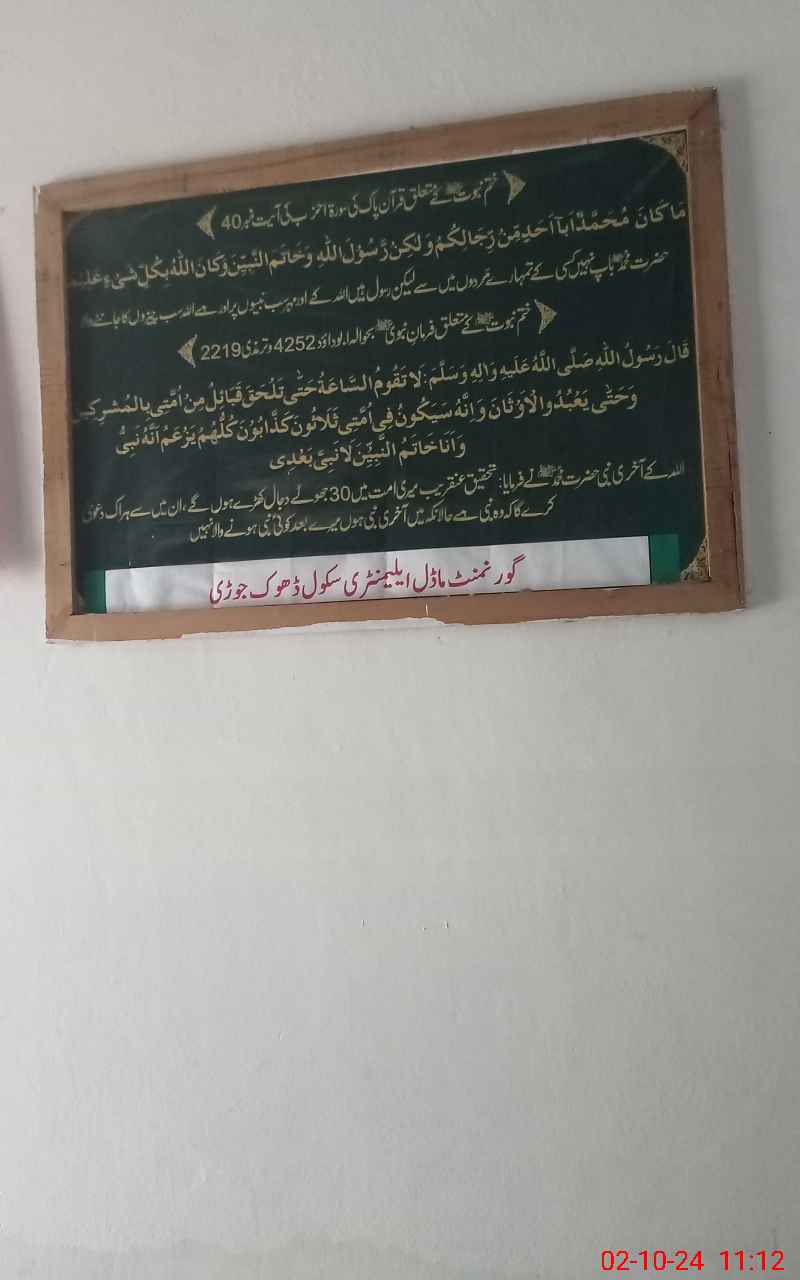 ختم نبوت ﷺ کے متعلق قرآن پاک کی سورۃ احزب کی آیت نمبر 40
مَا كَانَ مُحَمَّدٌ اَبَآ اَحَدٍ مِّنْ رِّجَالِكُمْ وَلٰكِنْ رَّسُوْلَ اللّٰهِ وَخَاتَمَ النَّبِيّٖنَ وَكَانَ اللّٰهُ بِكُلِّ شَيْءٍ عَلِيْمًا
حضرت محمد ﷺ باپ نہیں کسی کے تمہارے مردوں میں سے لیکن رسول ہیں اللہ کے اور مہر سب نبیوں پر اور ہے اللہ سب چیزوں کا جاننے
ختم نبوت ﷺ کے متعلق فرمان نبوی ﷺ بحوالہ ابوداؤد 4252 و ترمذی 2219
قَالَ رَسُوْلُ اللّٰهِ صَلَّى اللّٰهُ عَلَيْهِ وَاٰلِهٖ وَسَلَّمَ: لَا تَقُوْمُ السَّاعَةُ حَتّٰى تَلْحَقَ قَبَائِلُ مِنْ اُمَّتِى بِالْمُشْرِكِيْنَ
وَحَتّٰى يَعْبُدُوا الْاَوْثَانَ وَاِنَّهٗ سَيَكُوْنُ فِى اُمَّتِى ثَلَاثُوْنَ كَذَّابُوْنَ كُلُّهُمْ يَزْعَمُ اَنَّهٗ نَبِىٌّ
وَاَنَا خَاتَمُ النَّبِيّٖنَ لَا نَبِىَّ بَعْدِى
اللہ کے آخری نبی حضرت محمد ﷺ نے فرمایا: تحقیق عنقریب میری امت میں 30 جھوٹے دجال کھڑے ہوں گے، ان میں سے ہر اک دعویٰ
کرے گا کہ وہ نبی ہے حالانکہ میں آخری نبی ہوں میرے بعد کوئی نبی ہونے والا نہیں
گورنمنٹ ماڈل ایلیمنٹری سکول ڈھوک جوڑی
02-10-24 11:12